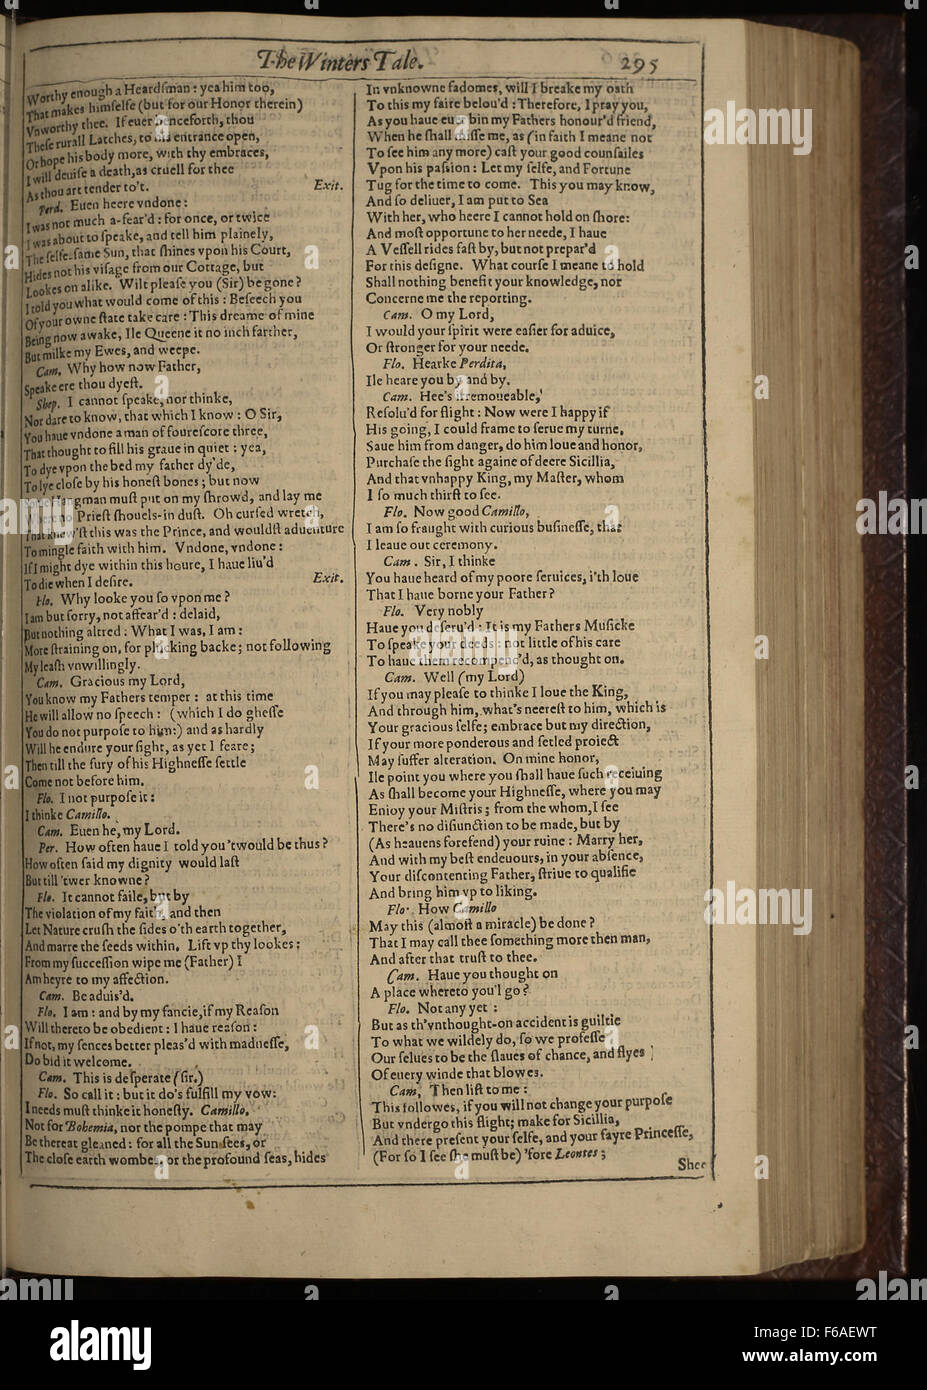 The Winters Tale. 295
Worthy enough a Heardſman: yea him too,
That makes himſelfe (but for our Honor therein)
Vnworthy thee. If euer henceforth, thou
Theſe rurall Latches, to his entrance open,
Or hope his body more, with thy embraces,
I will deuiſe a death, as cruell for thee
As thou art tender to't. Exit.
Perd. Euen heere vndone:
I was not much a-fear'd: for once, or twice
I was about to ſpeake, and tell him plainely,
The ſelfe-ſame Sun, that ſhines vpon his Court,
Hides not his viſage from our Cottage, but
Lookes on alike. Wilt pleaſe you (Sir) be gone?
I told you what would come of this: Beſeech you
Of your owne ſtate take care: This dreame of mine
Being now awake, Ile Queene it no inch farther,
But milke my Ewes, and weepe.
Cam. Why how now Father,
Speake ere thou dyeſt.
Shep. I cannot ſpeake, nor thinke,
Nor dare to know, that which I know: O Sir,
You haue vndone a man of foureſcore three,
That thought to fill his graue in quiet: yea,
To dye vpon the bed my father dy'de,
To lye cloſe by his honeſt bones; but now
Hangman muſt put on my ſhrowd, and lay me
Where no Prieſt ſhouels-in duſt. Oh curſed wretch,
That knew'ſt this was the Prince, and wouldſt aduenture
To mingle faith with him. Vndone, vndone:
If I might dye within this houre, I haue liu'd
To die when I deſire. Exit.
Flo. Why looke you ſo vpon me?
I am but ſorry, not affear'd: delaid,
But nothing altred: What I was, I am:
More ſtraining on, for plucking backe; not following
My leaſh vnwillingly.
Cam. Gracious my Lord,
You know my Fathers temper: at this time
He will allow no ſpeech: (which I do gheſſe
You do not purpoſe to him:) and as hardly
Will he endure your ſight, as yet I feare;
Then till the fury of his Highneſſe ſettle
Come not before him.
Flo. I not purpoſe it:
I thinke Camillo.
Cam. Euen he, my Lord.
Per. How often haue I told you 'twould be thus?
How often ſaid my dignity would laſt
But till 'twer knowne?
Flo. It cannot faile, but by
The violation of my faith, and then
Let Nature cruſh the ſides o'th earth together,
And marre the ſeeds within. Lift vp thy lookes:
From my ſucceſſion wipe me (Father) I
Am heyre to my affection.
Cam. Be aduis'd.
Flo. I am: and by my fancie, if my Reaſon
Will thereto be obedient: I haue reaſon:
If not, my ſences better pleas'd with madneſſe,
Do bid it welcome.
Cam. This is deſperate (ſir.)
Flo. So call it: but it do's fulfill my vow:
I needs muſt thinke it honeſty. Camillo,
Not for Bohemia, nor the pompe that may
Be thereat gleaned: for all the Sun ſees, or
The cloſe earth wombes, or the profound ſeas, hides
In vnknowne fadomes, will I breake my oath
To this my faire belou'd: Therefore, I pray you,
As you haue euer bin my Fathers honour'd friend,
When he ſhall miſſe me, as (in faith I meane not
To ſee him any more) caſt your good counſailes
Vpon his paſsion: Let my ſelfe, and Fortune
Tug for the time to come. This you may know,
And ſo deliuer, I am put to Sea
With her, who heere I cannot hold on ſhore:
And moſt opportune to her neede, I haue
A Veſſell rides faſt by, but not prepar'd
For this deſigne. What courſe I meane to hold
Shall nothing benefit your knowledge, nor
Concerne me the reporting.
Cam. O my Lord,
I would your ſpirit were eaſier for aduice,
Or ſtronger for your neede.
Flo. Hearke Perdita,
Ile heare you by and by.
Cam. Hee's irremoueable,
Reſolu'd for flight: Now were I happy if
His going, I could frame to ſerue my turne,
Saue him from danger, do him loue and honor,
Purchaſe the ſight againe of deere Sicillia,
And that vnhappy King, my Maſter, whom
I ſo much thirſt to ſee.
Flo. Now good Camillo,
I am ſo fraught with curious buſineſſe, that
I leaue out ceremony.
Cam. Sir, I thinke
You haue heard of my poore ſeruices, i'th loue
That I haue borne your Father?
Flo. Very nobly
Haue you deſeru'd: It is my Fathers Muſicke
To ſpeake your deeds: not little of his care
To haue them recompenc'd, as thought on.
Cam. Well (my Lord)
If you may pleaſe to thinke I loue the King,
And through him, what's neereſt to him, which is
Your gracious ſelfe; embrace but my direction,
If your more ponderous and ſetled proiect
May ſuffer alteration. On mine honor,
Ile point you where you ſhall haue ſuch receiuing
As ſhall become your Highneſſe, where you may
Enioy your Miſtris; from the whom, I ſee
There's no diſiunction to be made, but by
(As heauens forefend) your ruine: Marry her,
And with my beſt endeuours, in your abſence,
Your diſcontenting Father, ſtriue to qualifie
And bring him vp to liking.
Flo. How Camillo
May this (almoſt a miracle) be done?
That I may call thee ſomething more then man,
And after that truſt to thee.
Cam. Haue you thought on
A place whereto you'l go?
Flo. Not any yet:
But as th'vnthought-on accident is guiltie
To what we wildely do, ſo we profeſſe
Our ſelues to be the ſlaues of chance, and flyes
Of euery winde that blowes.
Cam. Then liſt to me:
This followes, if you will not change your purpoſe
But vndergo this flight; make for Sicillia,
And there preſent your ſelfe, and your fayre Princeſſe,
(For ſo I ſee ſhe muſt be) 'fore Leontes;
Shee
alamy
Image ID: F6AEWT
www.alamy.com